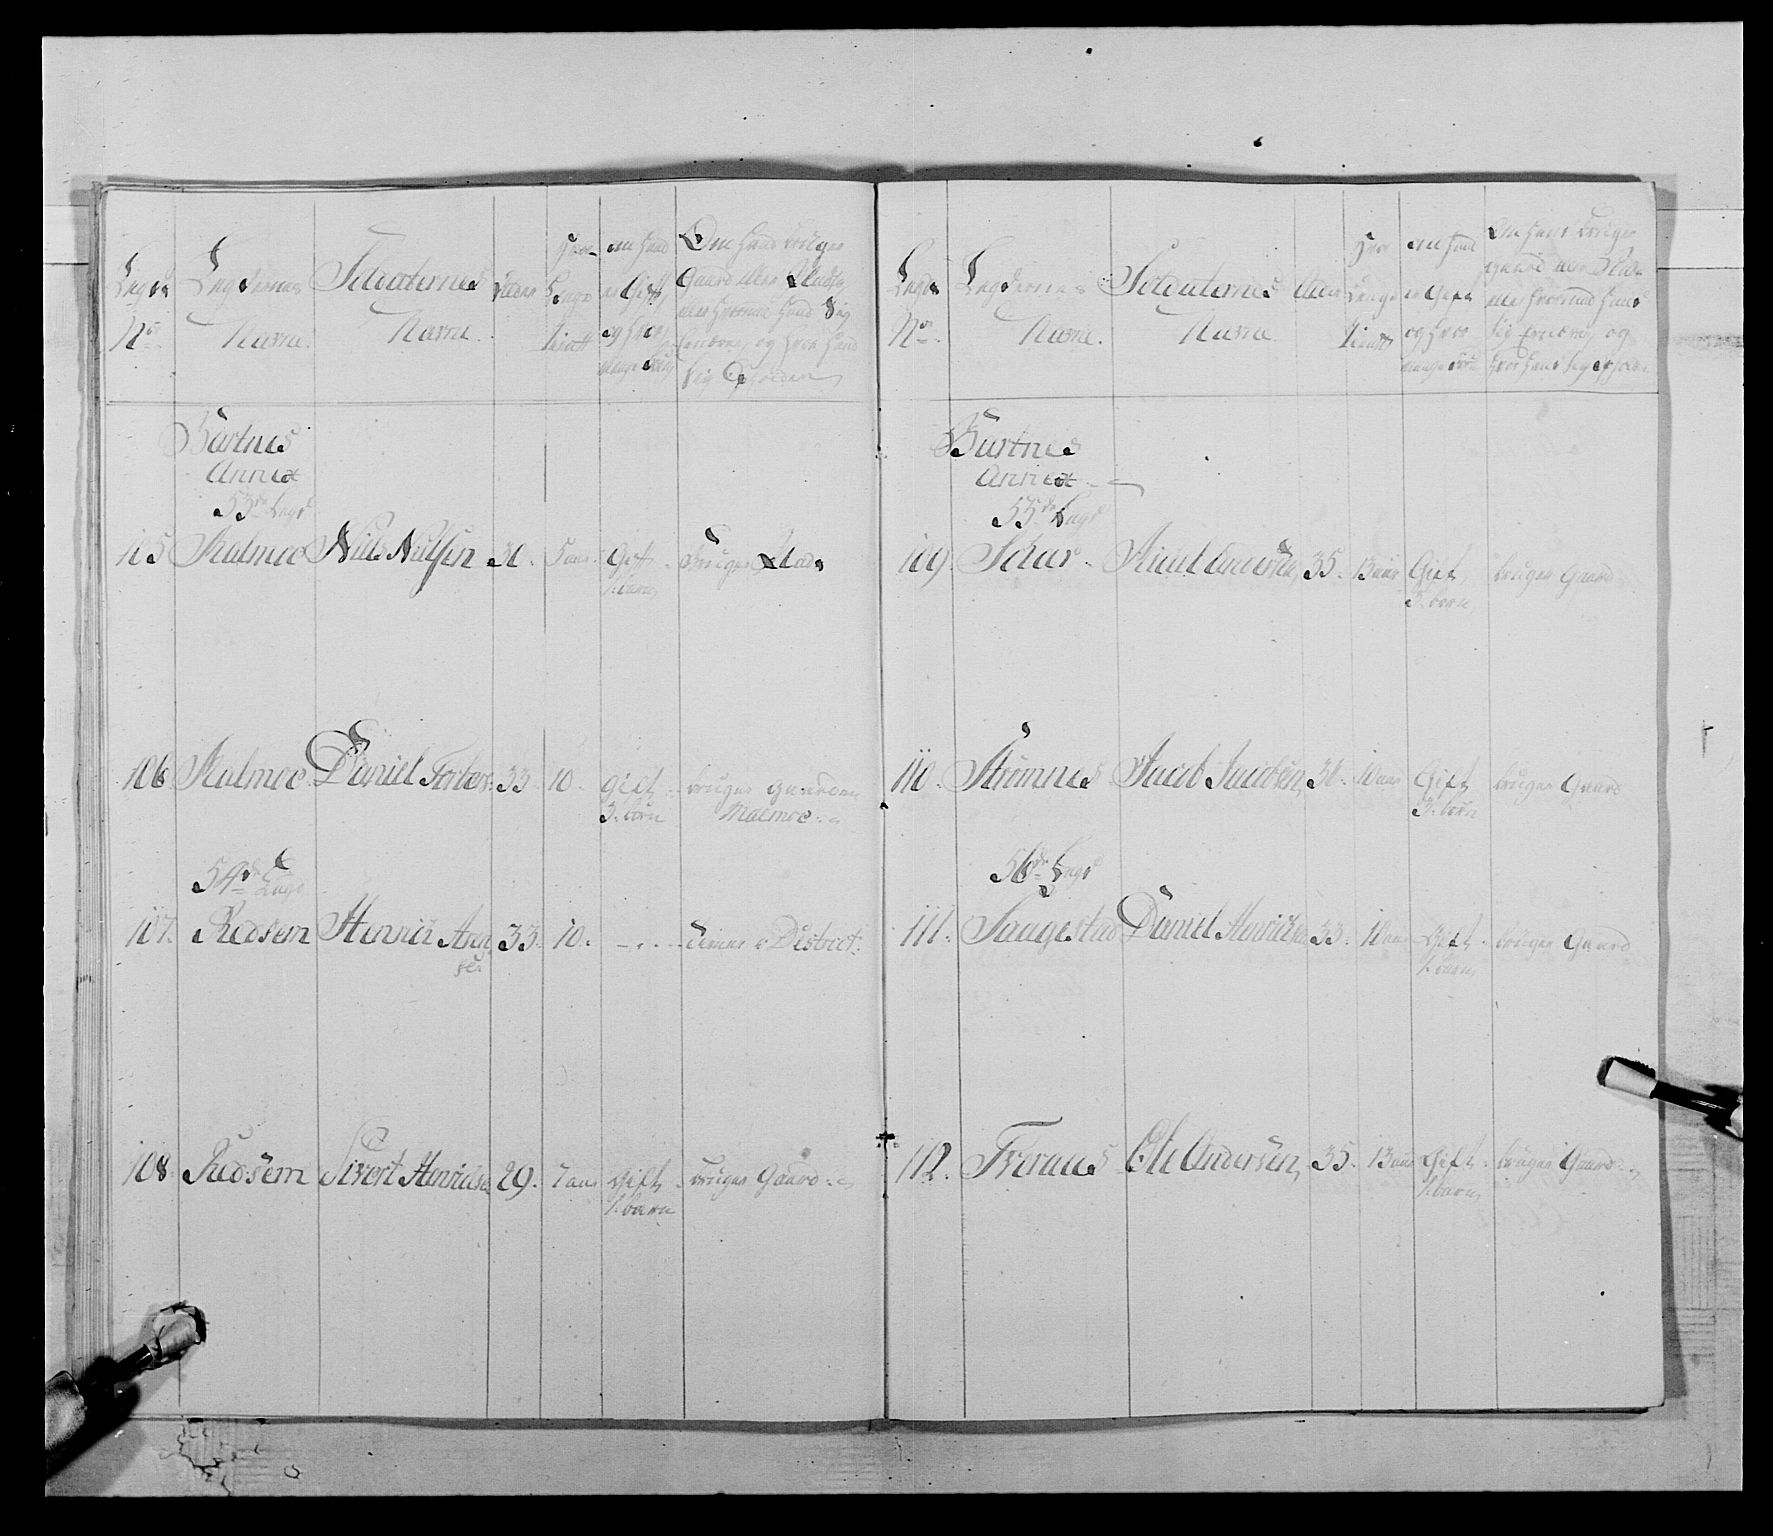 Legds No.
Legdernes Navne.
Soldaternes Navne.
Alder
Hvor Længe tient
om hand er Gift og hvor mange Børn
Om hand bruger
Gaard eller Plads,
eller hvormed hand sig
Ernærer, og hvor hand
sig Opholder
Bartnes
Annex
53de Legd
105 Malmoe Niels Nielsen 30. 5 aar Gift 1. barn bruger Plads
106 Malmoe Daniel Torbers. 33. 10. Gift 3. børn bruger gaarden Malmoe
54de Legd
107. Redsem Henrich Aren sen 33. 10. tiener i District.
108 Redsem Sivert Henrichsen 29. 7 aar Gift 1. barn bruger Gaard
Legds No.
Legdernes Navne.
Soldaternes Navne
Alder
Hvor Længe tient
om hand er Gift og hvor mange Børn
Om hand bruger
gaard eller Plads
eller hvormed hand
sig Ernærer, og
hvor hand sig opholder
Bartnes
Annex
55de Legd
109. 35. 13 aar Gift 3. børn bruger Gaard
110. Strømnes Jacob Jacobsen 10 aar Gift 3. børn bruger Gaard
56de Legd
111. Saugestad Daniel Henrichsen 33. 10 aar Gift 1. barn bruger Gaard
112. Tveraas Ole Andersen 35. 13 aar Gift 1. barn bruger Gaard